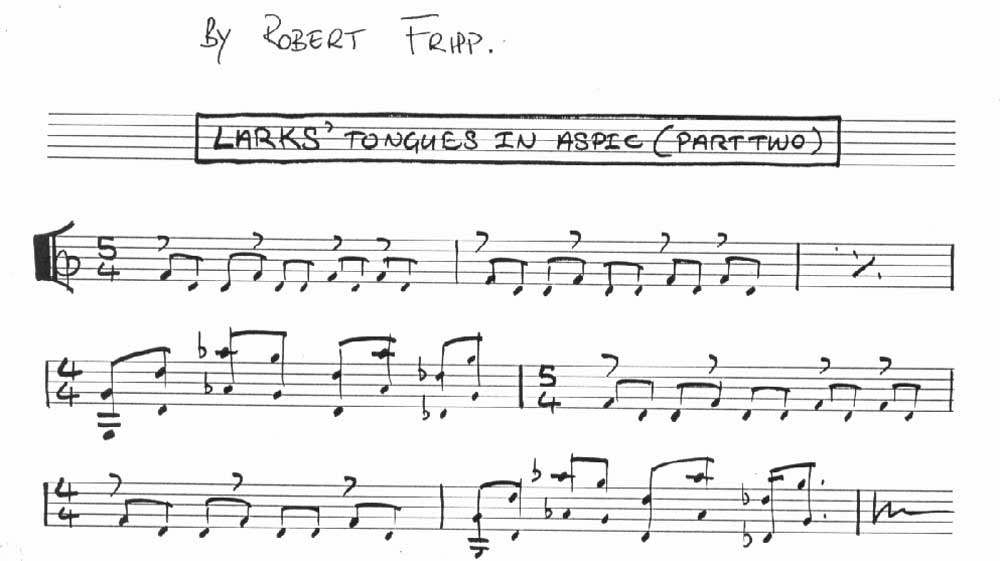 By ROBERT FRIPP.
LARKS' TONGUES IN ASPIC (PART TWO)
5
4
4
4
5
4
4
4